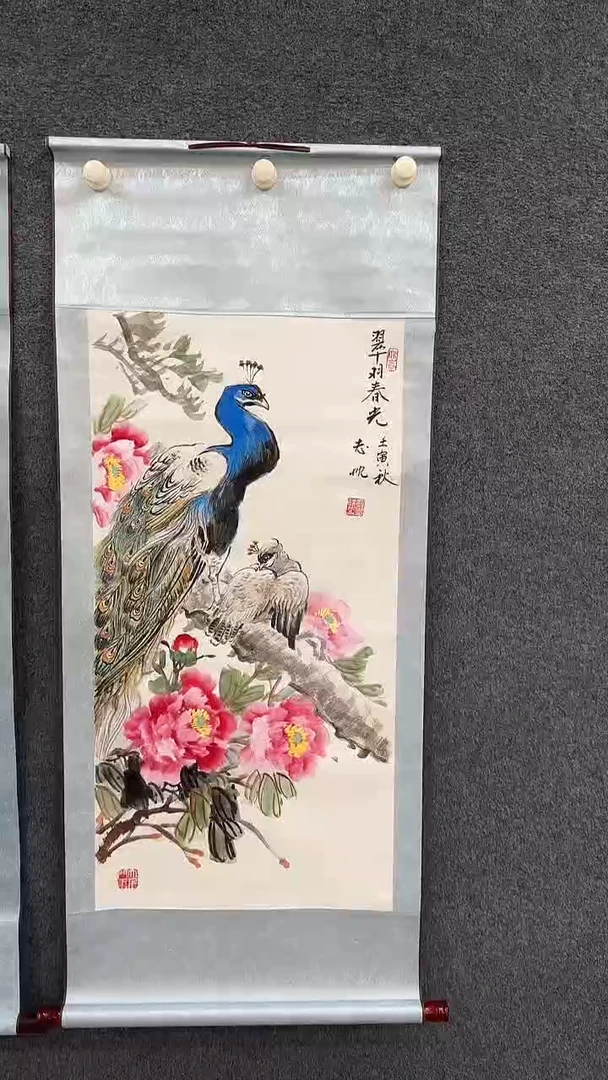 翠羽春光
壬寅秋
志帆